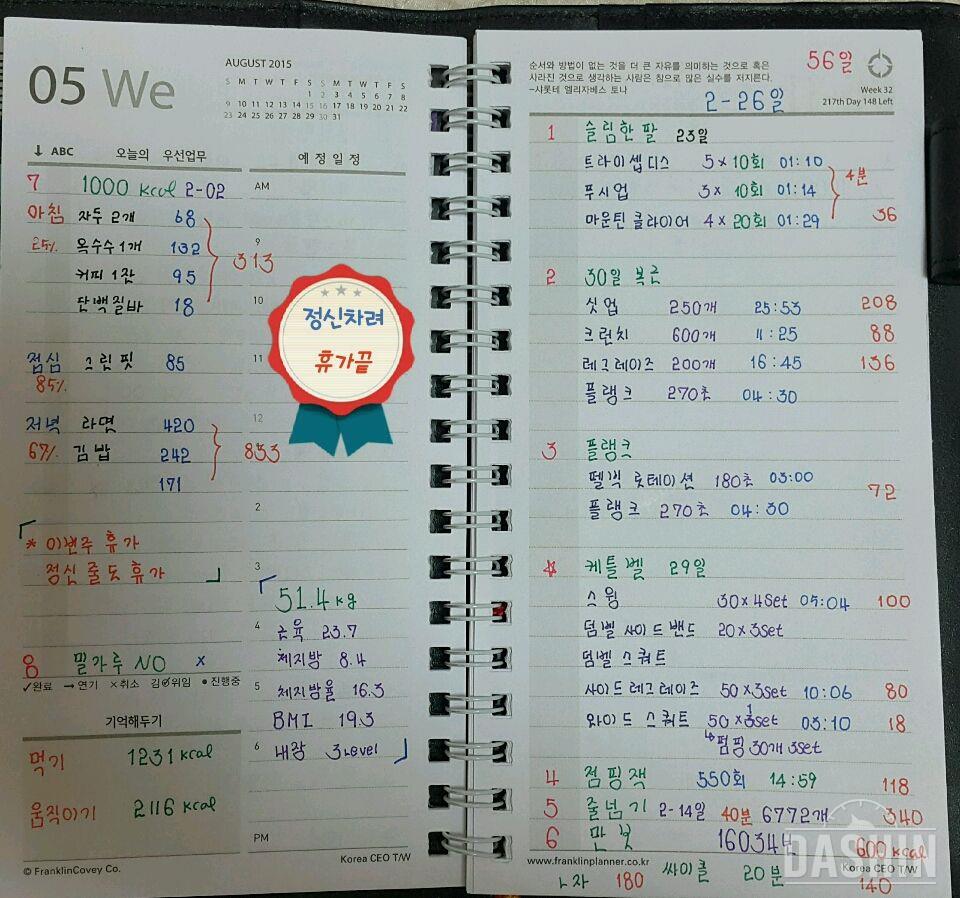 05 We
AUGUST 2015
S M T W T F S S M T W T F S
1 2 3 4 5 6 7 8
9 10 11 12 13 14 15 16 17 18 19 20 21 22
23 24 25 26 27 28 29 30 31
↓ ABC 오늘의 우선업무
예 정 일 정
7 1000 kcal 2-02
아침 자두 2개 68
25% 옥수수 1개 132
커피 1잔 95
단백질바 18
313
점심 그린 핏 85
85%
저녁 라면 420
67% 김밥 242
171
853
* 이번주 휴가
정신 줄도 휴가
8 밀가루 NO x
✓완료 →연기 ×취소 김∅위임 •진행중
기억해두기
먹기 1231 kcal
움직이기 2116 kcal
© FranklinCovey Co.
AM
9
10
11
12
정신차려
휴가끝
2
3
51.4 kg
4
근육 23.7
체지방 8.4
5
체지방율 16.3
BMI 19.3
6
내장 3 Level
PM
Korea CEO T/W
순서와 방법이 없는 것을 더 큰 자유를 의미하는 것으로 혹은
사라진 것으로 생각하는 사람은 참으로 많은 실수를 저지른다.
-샤롯테 엘리자베스 토나
56일
Week 32
217th Day 148 Left
2-26일
1 슬림한 팔 23일
트라이셉디스 5 x 10회 01:10
푸시업 3 x 10회 01:14
마운틴 클라이머 4 x 20회 01:29
4분
36
2 30일 복근
싯업 250개 25:53 208
크런치 600개 11:25 88
레그레이즈 200개 16:45 136
플랭크 270초 04:30
3 플랭크
펠빅 롯테이션 180초 03:00
72
플랭크 270초 04:30
☆ 케틀벨 29일
스윙 30 x 4Set 05:04 100
덤벨 사이드밴드 20 x 3set
덤벨 스쿼트
사이드레그레이즈 50 x 3set 10:06 80
와이드 스쿼트 50 x 3set 03:10 18
↳점핑 30개 3set
4 점핑잭 550회 14:59 118
5 줄넘기 2-14일 40분 6772개 340
6 만보 160344 600 kcal
www.franklinplanner.co.kr
Korea CEO T/W
180 싸이클 20분 140
DASHIN